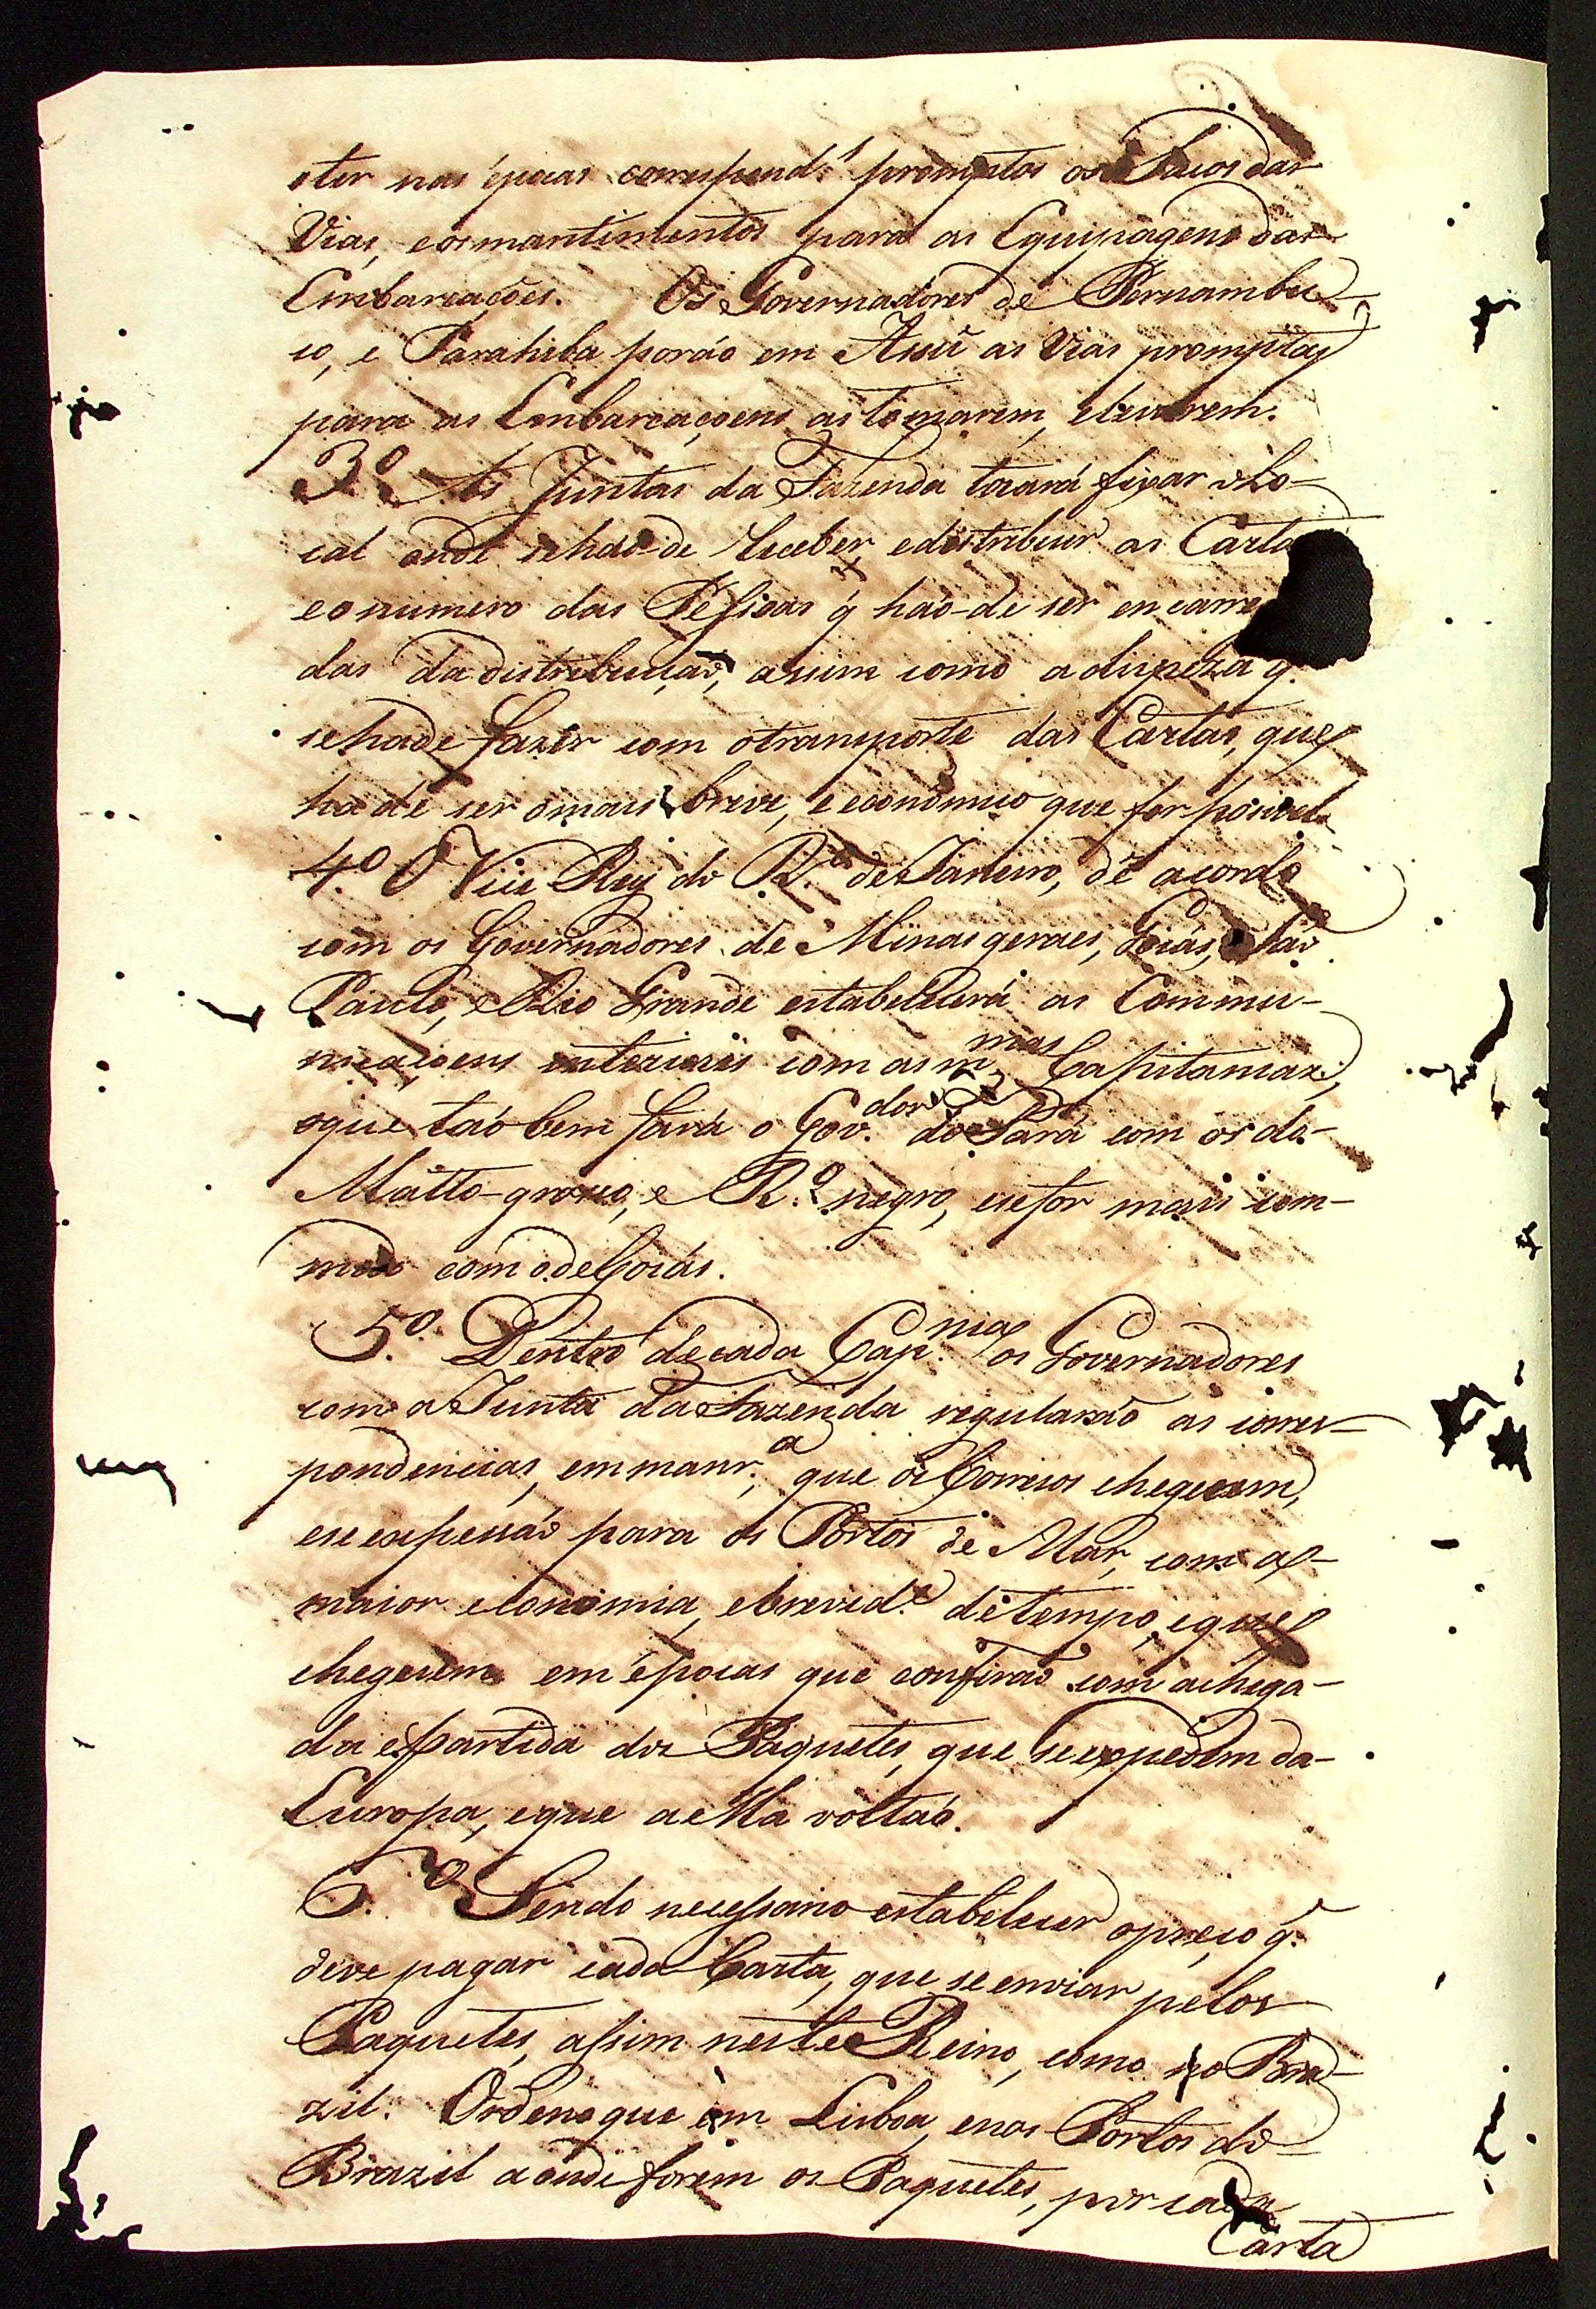 eter nas épocas correspond.s promptos os Sacos das
Vias, eos mantimentos para as Equipagens das
Embarcações. Os Governadores de Pernambu-
co, e Parahiba poráo em Assû as Vias promptas
para as Embarcaçoens as tomarem, elevarem.
3º As Juntas da Fazenda tocará fixar o Lo-
cal onde sehaõ-de receber, edistribuir as Carta
eo numero das Peſsoas q̃ haõ-de ser encarre
das da distribuiçaõ, asssim como a dispeza q.
sehade fazer com otransporte das Cartas, que
hade ser omais breve, e económico que for possivel.
4.º O Vice Rey do R.º de Janeiro, de acordo
com os Governadores de Minas geraes, Goiás, Saõ
Paulo, e Rio Grande estabelecerá as Commu-
nicaçoens interiores com as m.mas Capitanias,
oque taõbem fará o Gov.dor do Pará com os do
Matto-grosso, e R.º negro, esefor mais com-
modo com o de Goiás.
5.º Dentro decada Cap.nia os Governadores
com a Junta da Fazenda regularáõ as corres-
pondencias, emmanr.a que os Correios cheguem,
ese expessaõ para os Portos de Mar, com a
maior economia, ebrevid.e detempo, eque
cheguem em épocas que confiraõ com achega-
da epartida dos Paquetes, que seexpedem da
Europa, eque aella voltaõ.
6.º Sendo neceſsario estabelecer opreço q̃.
deve pagar cada Carta, que se enviar pelos
Paquetes, aſsim neste Reino, como no Bra-
zil. Ordeno que em Lisboa, enos Portos do
Brazil aonde forem os Paquetes, por cada
Carta